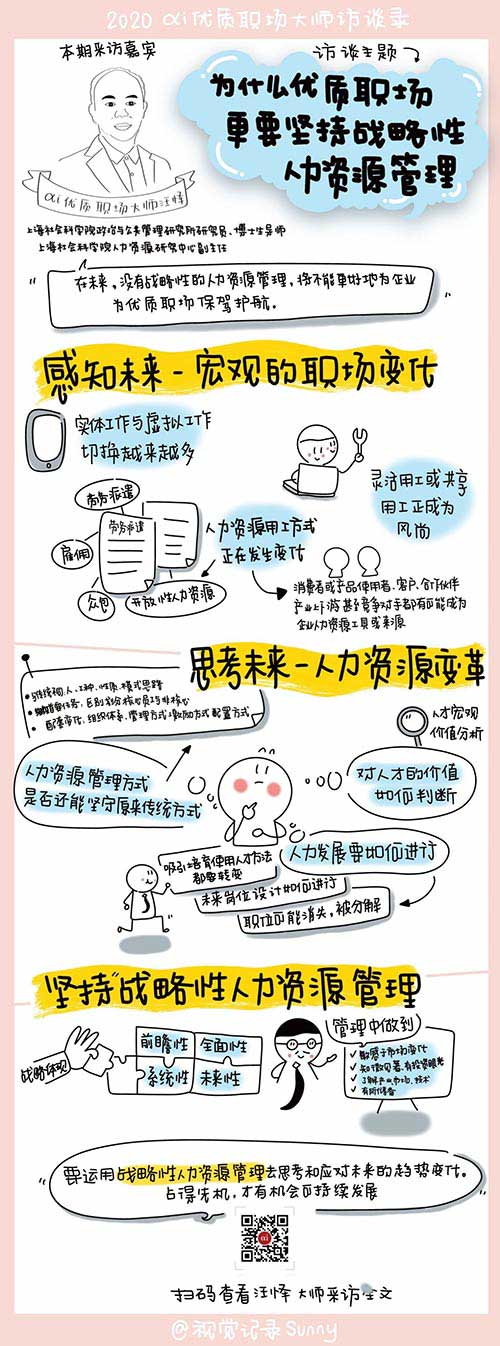 2020 αi优质职场大师访谈录
本期来访嘉宾
访谈主题
为什么优质职场
更要坚持战略性
人力资源管理
αi优质职场大师汪怿
上海社会科学院政治与公共管理研究所研究员、博士生导师
上海社会科学院人力资源研究中心副主任
"在未来,没有战略性的人力资源管理,将不能更好地为企业
为优质职场保驾护航。"
感知未来-宏观的职场变化
实体工作与虚拟工作
切换越来越多
灵活用工或共享
用工正成为
风尚
商务派遣
劳务派遣
雇佣
众包
开放性人力资源
人力资源用工方式
正在发生变化
消费者或产品使用者、客户、合作伙伴
产业上下游甚至竞争对手都有可能成为
企业人力资源工具或来源
思考未来-人力资源变革
配套变化,组织体系、管理方式、激励方式、配置方式
人才宏观
价值分析
人力资源管理方式
是否还能坚守原来传统方式
对人才的价值
如何判断
人力发展要如何进行
吸引培育使用人才方法
都要转变
未来岗位设计如何进行
职位可能消失,被分解
坚持"战略性人力资源管理
战略体现
前瞻性
全面性
系统性
未来性
管理中做到
✓敏感于市场变化
✓知微见著,有投资眼光
✓了解产业、市场、技术
✓有所储备
要运用战略性人力资源管理去思考和应对未来的趋势变化。
占得先机,才有机会可持续发展
αi
扫码查看汪怿大师采访全文
@视觉记录Sunny